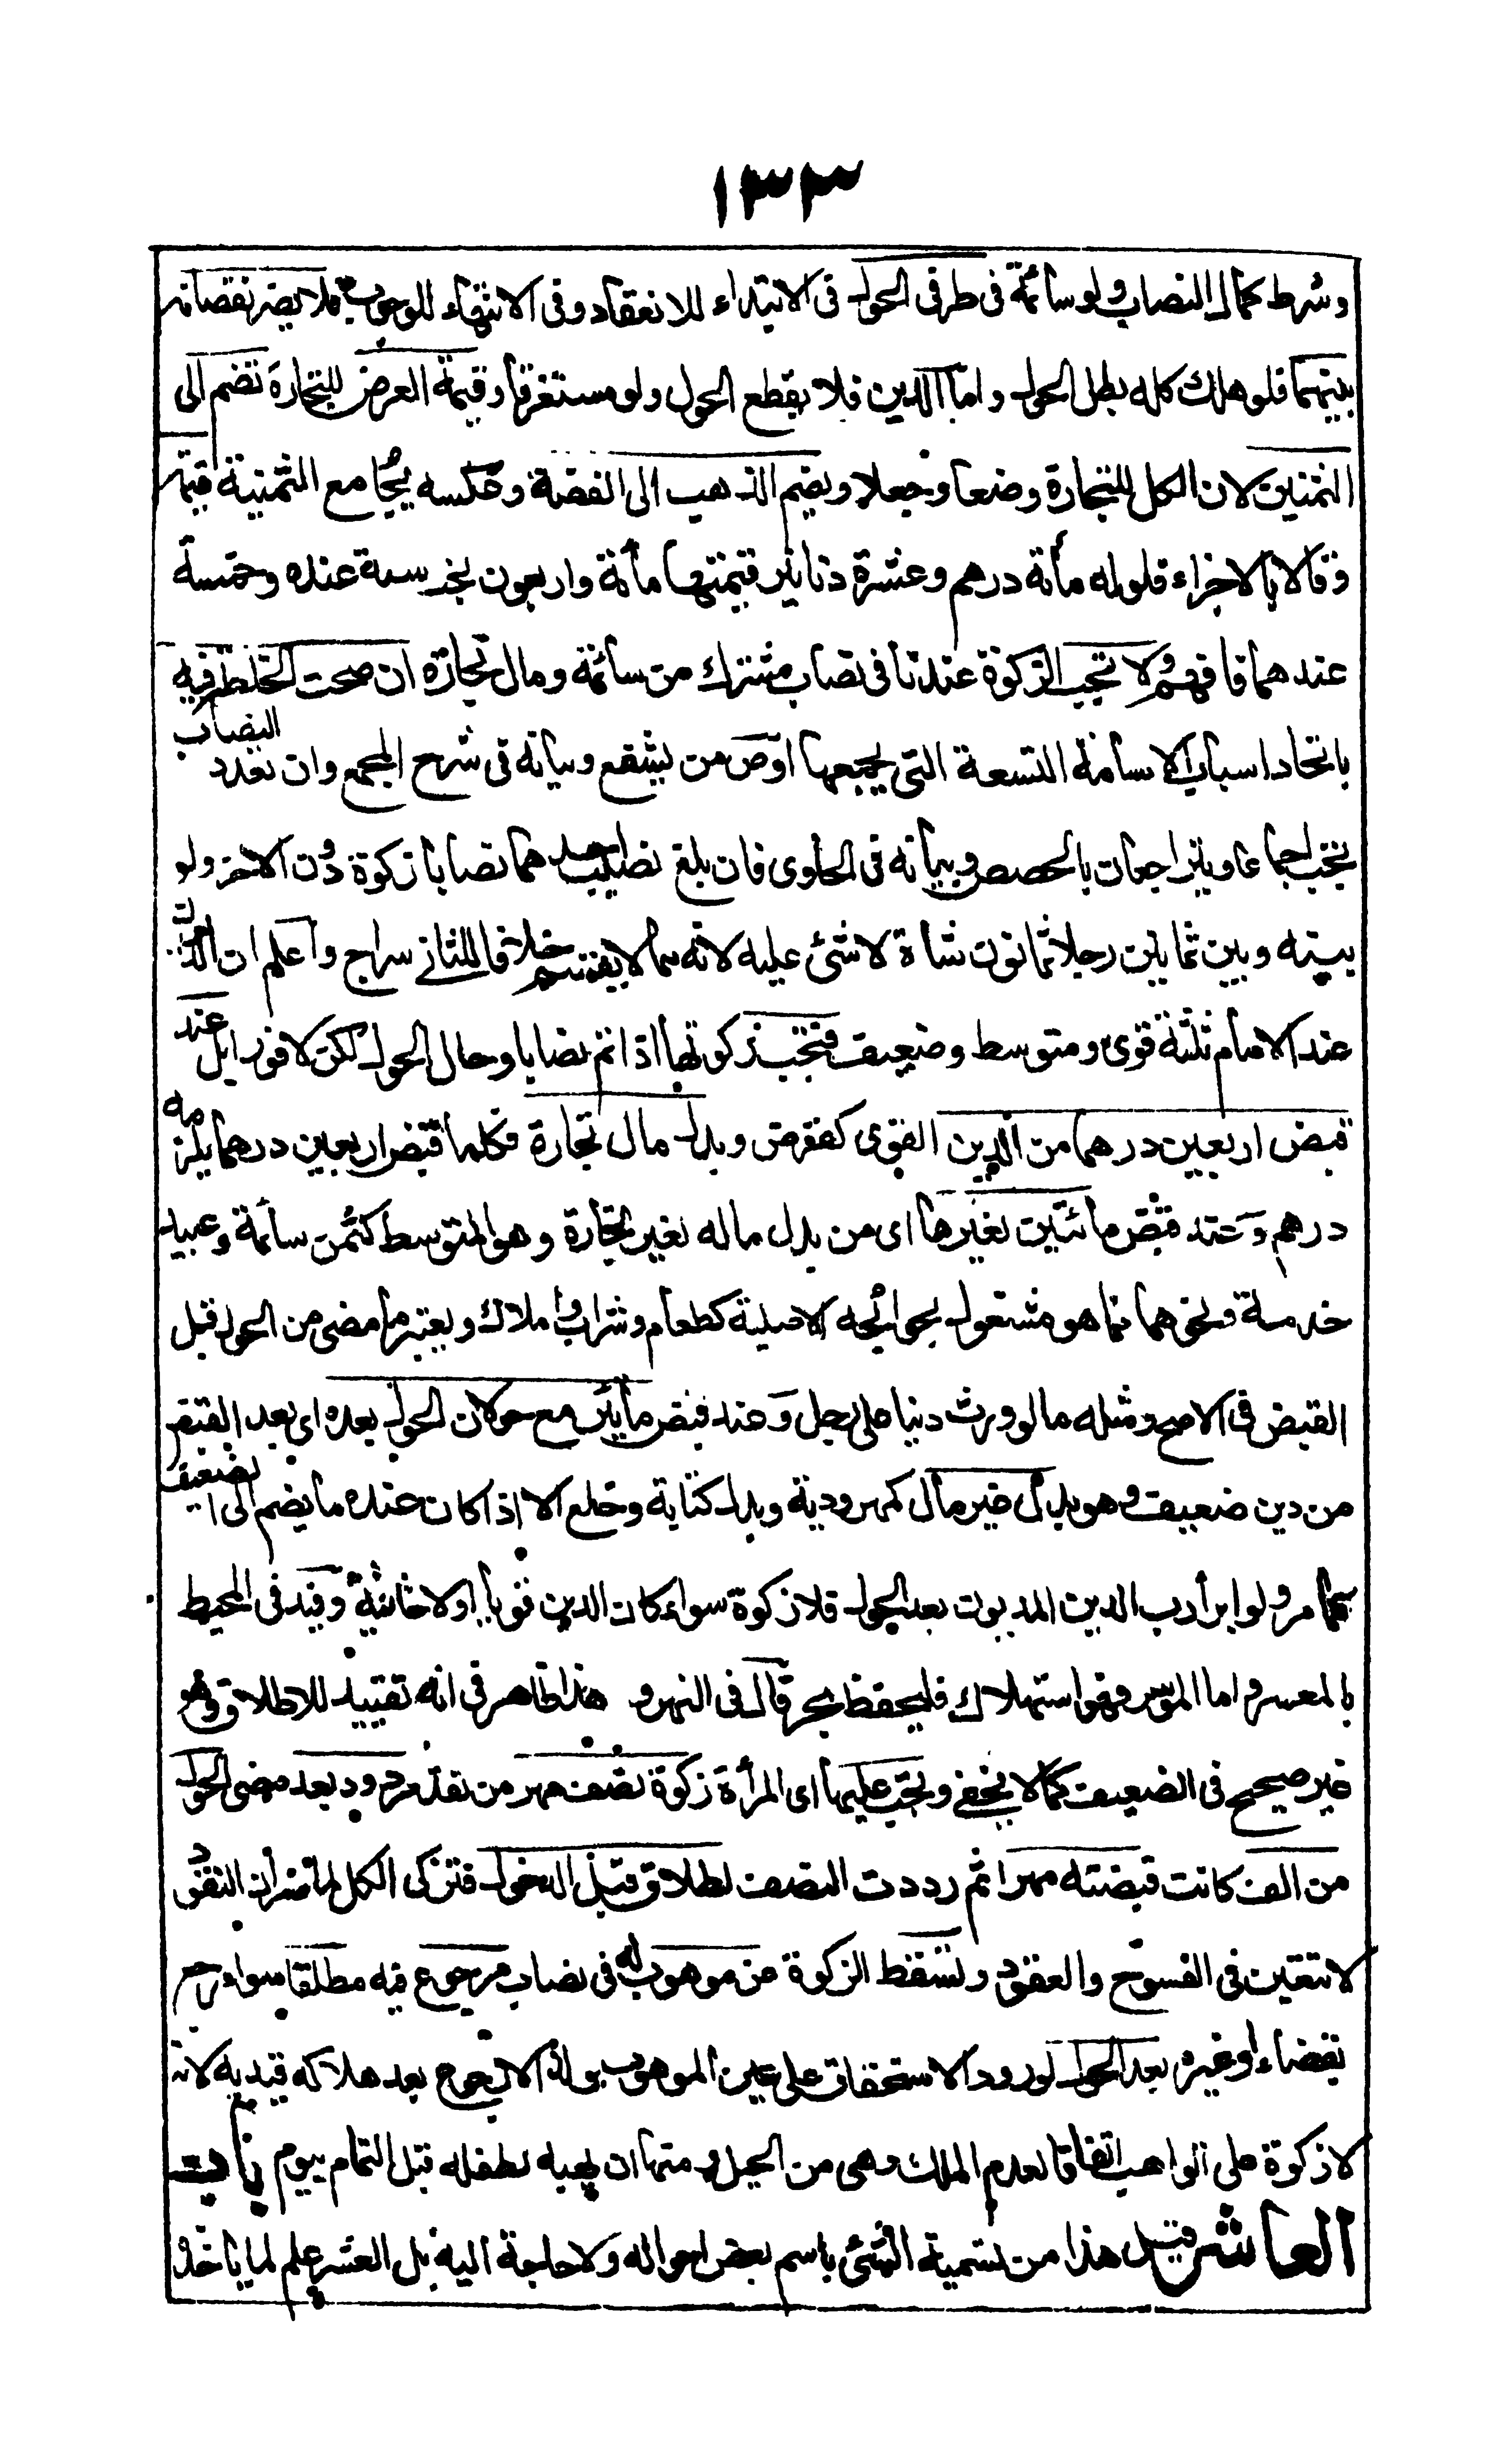 ١٣٣
وشرط كمال النصاب ولو سائمة فى طرفى الحول فى الابتداء للانعقاد وفى الانتهاء للوجوب فلا يضر نقصانه
بينهما فلو هلك كله بطل الحول واما الدين فلا يقطع الحول ولو مستغرقا وقيمة العرض للتجارة تضم الى
الثمنين لان الكل للتجارة وضعا وجعلا ويضم الذهب الى الفضة وعكسه بجامع الثمنية قيمة
وقالا بالاجزاء فلو له مأة درهم وعشرة دنانير قيمتها مأة واربعون تجب ستة عنده وخمسة
عندهما فافهم ولا تجب الزكوة عندنا فى نصاب مشترك من سائمة ومال تجارة ان صحت الخلطة فيه
باتحاد اسباب الاسامة التسعة التى يجمعها اوص من يشفع وبيانه فى شرح المجمع وان تعدد النصاب
تجب اجماعا ويتراجعان بالحصص وبيانه فى الحاوى فان بلغ نصيب احدهما نصابا زكوة دون الاخر ولو
بينه وبين ثمانين رجلا ثمانون شاة لا شئ عليه لانه مما لا يقسم خلافا للثانى سراج واعلم ان الديون
عند الامام ثلثة قوى ومتوسط وضعيف فتجب زكوتها اذا تم نصابا وحال الحول لكن لا فورا بل عند
قبض اربعين درهما من الدين القوى كقرض وبدل مال تجارة فكلما قبض اربعين درهما يلزمه
درهم وعند قبض مائتين لغيرها اى من بدل مال له لغير تجارة وهو المتوسط كثمن سائمة وعبيد
خدمة ونحوهما مما هو مشغول بحوائجه الاصلية كطعام وشراب واملاك ويعتبر ما مضى من الحول قبل
القبض فى الاصح ومثله ما لو ورث دينا على رجل وعند قبض مأتين مع حولان الحول بعده اى بعد القبض
من دين ضعيف وهو بدل غير مال كمهر ودية وبدل كتابة وخلع الا اذا كان عنده ما يضم الى الضعيف
كما مر ولو ابرأ رب الدين المديون بعد الحول فلا زكوة سواء كان الدين قويا اولا خانية وقيد فى المحيط
بالمعسر واما الموسر فهو استهلاك فليحفظ بحر قال فى النهر وهذا ظاهر فى انه تقييد للاطلاق وهو
غير صحيح فى الضعيف كما لا يخفى وتجب عليها اى المرأة زكوة نصف مهر من نقد مردود بعد مضى الحول
من الف كانت قبضته مهرا ثم رددت النصف لطلاق قبل الدخول فتزكى الكل لما مر ان النقود
لا تتعين فى الفسوخ والعقود وتسقط الزكوة عن موهوب له فى نصاب مرجوع فيه مطلقا سواء رجع
بقضاء او غيره بعد الحول لورود الاستحقاق على عين الموهوب ولذا لا رجوع بعد هلاكه قيد به لانه
لا زكوة على الواهب اتفاقا لعدم الملك وهى من الحيل ومنها ان يهبه لطفله قبل التمام بيوم باب
العاشر قيل هذا من تسمية الشئ باسم بعض احواله ولا حاجة اليه بل العشر علم لما يأخذ